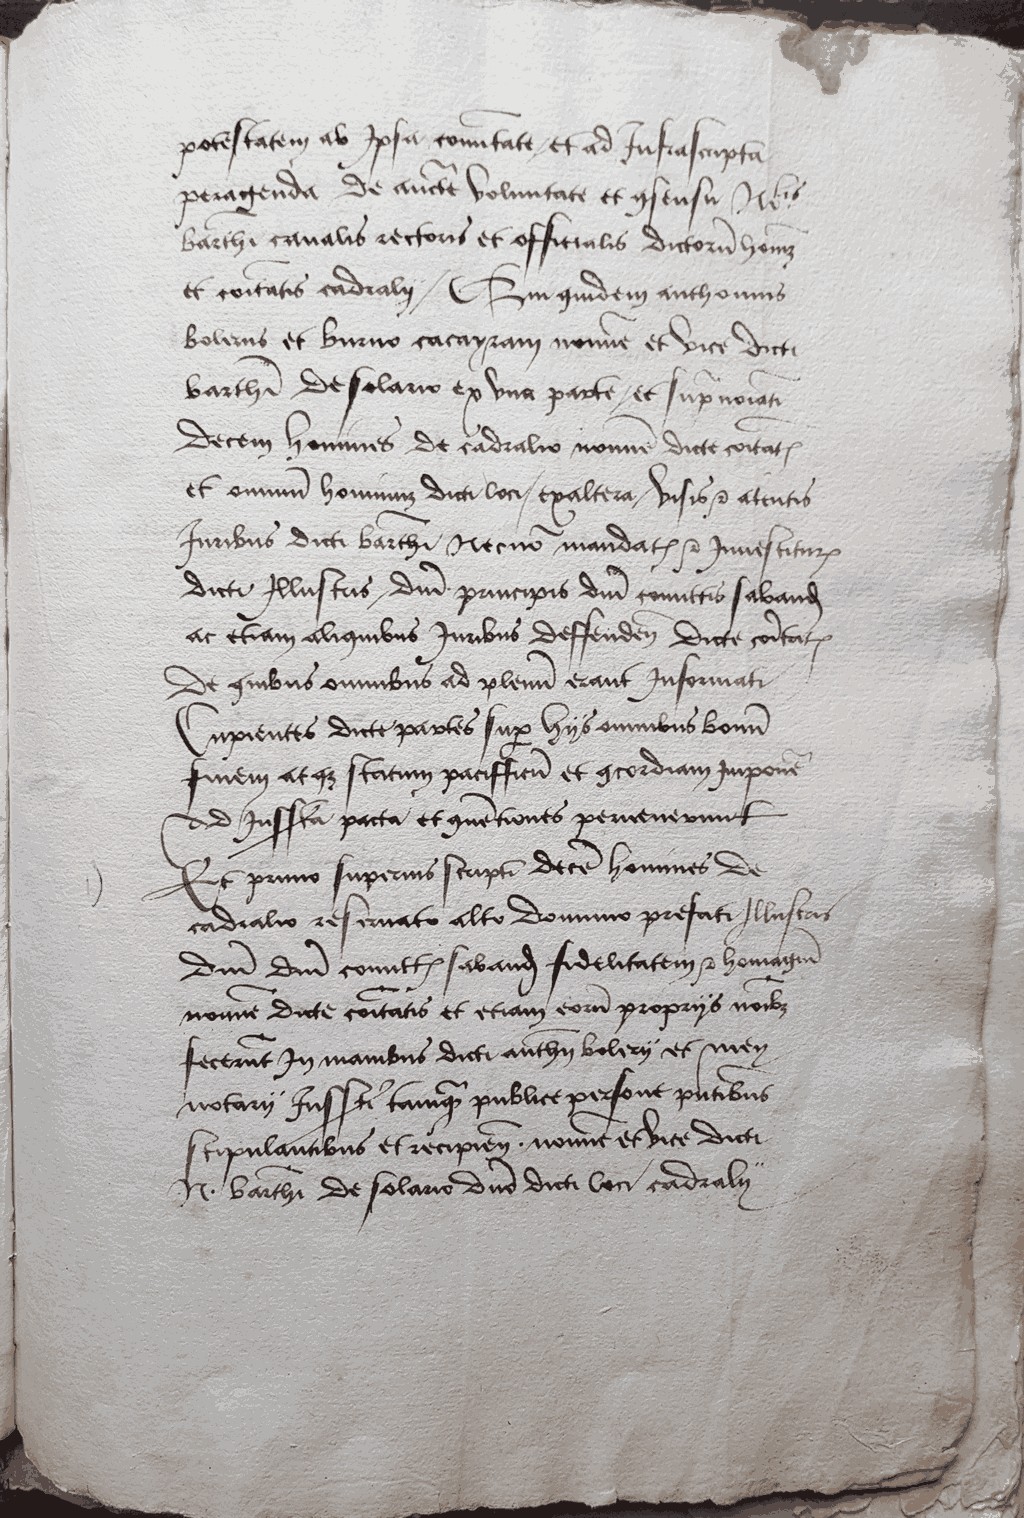 potestatem ab Ipsa comũtate / et ad Infrascripta
peragenda de aucte voluntate et ɔsensu Nobis
barthi canalis rectoris et officialis dictorũ homĩꝫ
et coitatis cadralij / Qui quidem anthonius
bolerus et bruno cacayram noie et vice dicti
barthi de solario ex una parte / et supnoiati
decem homines de cadralio noie dicte coitatꝭ
et omniũ hominuꝫ dicti loci / ex altera / visis et atentis
Iuribus dicti barthi Necnõ mandatꝭ et Inuestiturꝭ
dicti Illustris / dni principis dni comittis sabaud
ac etiam aliquibus Iuribus deffendeñ dicte coitatꝭ
de quibus omnibus ad plenũ erant Informati
Cupientes dicte partes sup hijs omnibus bonũ
finem atqꝫ statum pacifficũ et ɔcordiam Imponẽ
ad Infrascta pacta et ɔuẽtiones peruenerunt
Et primo superius scripti decẽ homines de
cadralio reseruato alto dominio prefati Illustris
dni dni comittꝭ sabaud fidelitatem et homagiũ
noie dicte coitatis et etiam eorũ proprijs noibꝫ
fecerũt In manibus dicti anthij bolerij et mey
notarij Infrascti tamqꝫ publice persone pñtibus
stipulantibus et recipieñ . noie et vice dicti
N. barthi de solario dnõ dicti loci cadralij